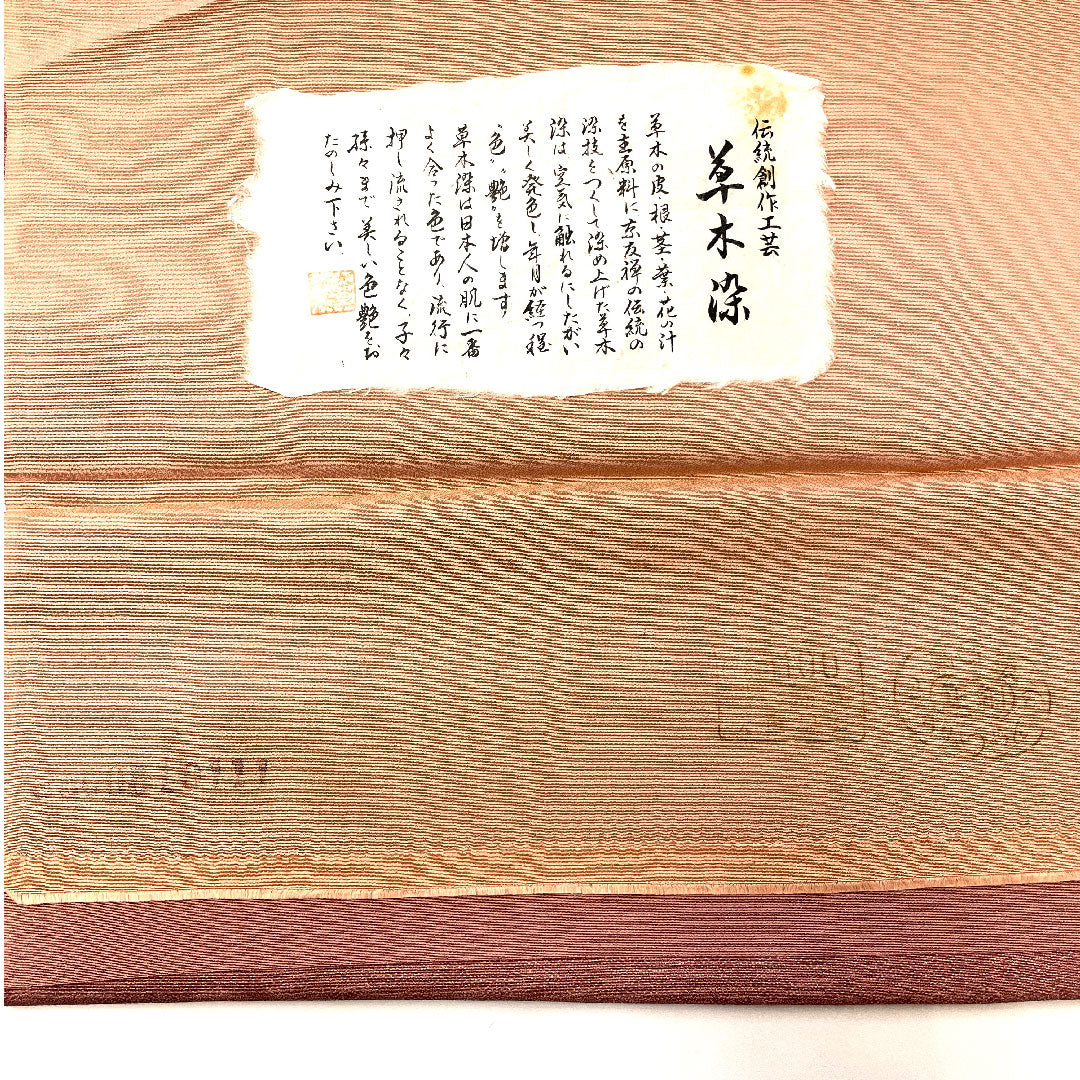 伝統創作工芸
草木染
草木の皮・根・茎・葉・花の汁
を主原料に京友禅の伝統の
染技をつくして染め上げた草木
染は空気に触れるにしたがい
美しく発色し、年月が経つ程
〝色〟〝艶〟を増します。
草木染は日本人の肌に一番
よく合った色であり、流行に
押し流されることなく、子々
孫々まで美しい色艶をお
たのしみ下さい。